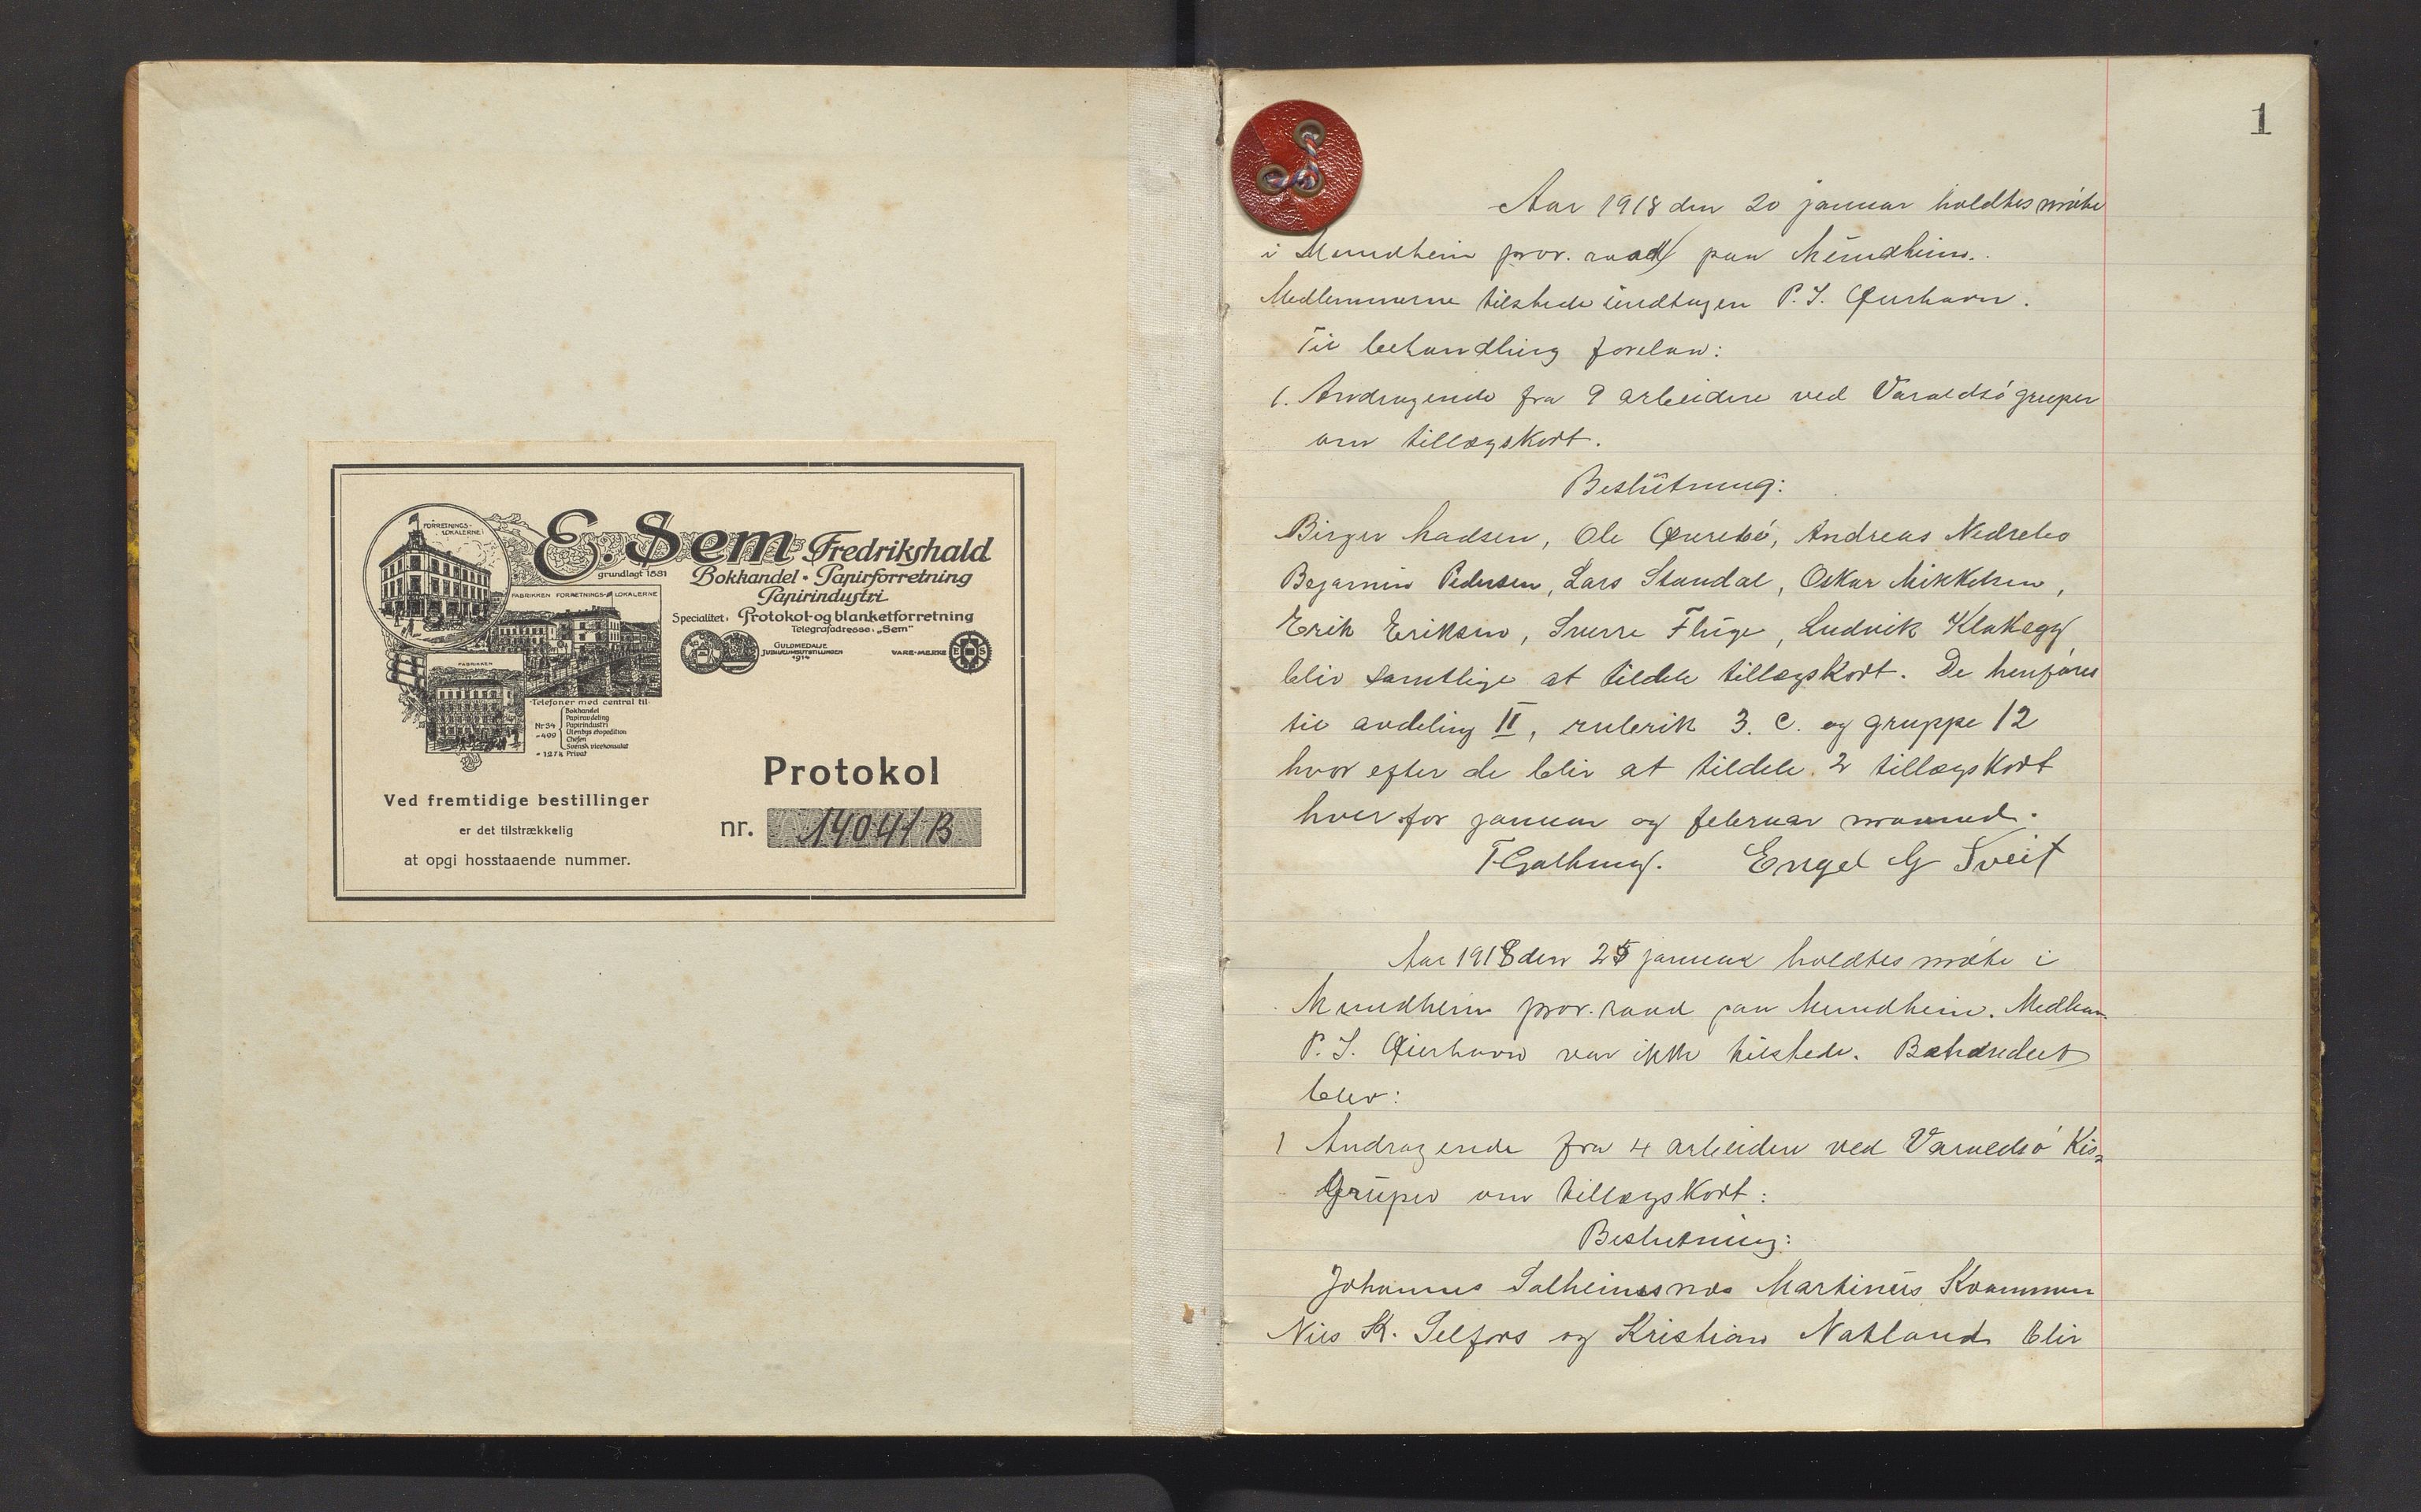 FORRETNINGS-
LOKALERNE
E. Sem Fredrikshald
grundlagt 1891
Bokhandel • Papirforretning
Papirindustri
FABRIKKEN FORRETNINGS-LOKALERNE
Specialitet: Protokol- og blanketforretning
Telegrafadresse: „Sem"
GULDMEDALJE
JUBILÆUMSUTSTILLINGEN
1914
VARE-MERKE
E S
FABRIKKEN
Telefoner med central til
Bokhandel
Papiravdeling
Nr 54 Papirindustri
- 499 Utenbys ekspedition
Chefen
Svensk vicekonsulat
- 1274 Privat
Protokol
nr. 14041 B
Ved fremtidige bestillinger
er det tilstrækkelig
at opgi hosstaaende nummer.
1
Aar 1918 den 20 januar holdtes møte
i Mundheim prov. raad paa Mundheim.
Medlemmerne tilstede undtagen P. J.
Til behandling forelaa:
1. Andragende fra 9 arbeidere ved Varaldsö gruper
om tillægskort.
Beslutning:
Birger Madsen, Ole Øvrebö, Andreas Nedrebo
Bejamin Pedersen, Lars Standal, Oskar Mikkelsen,
Erik Eriksen, Sverre Fluge, Ludvik Klakegg
bliv samtlige at tildele tillægskort. De henføres
til avdeling II, rubrik 3. c. og gruppe 12
hvor efter de blir at tildele 2 tillægskort
hver for januar og februar maaned.
Engel G Tveit
Aar 1918 den 25 januar holdtes møte i
Mundheim prov. raad paa Mundheim. Medlem
P. J. var ikke tilstede. Behandlet
blev:
1 Andragende fra 4 arbeidere ved Varaldsö Kis=
Gruper om tillægskort:
Beslutning:
Johannes Solheimsnes Martinus Kvammen
Nils K. Selfors og Kristian Natland blir